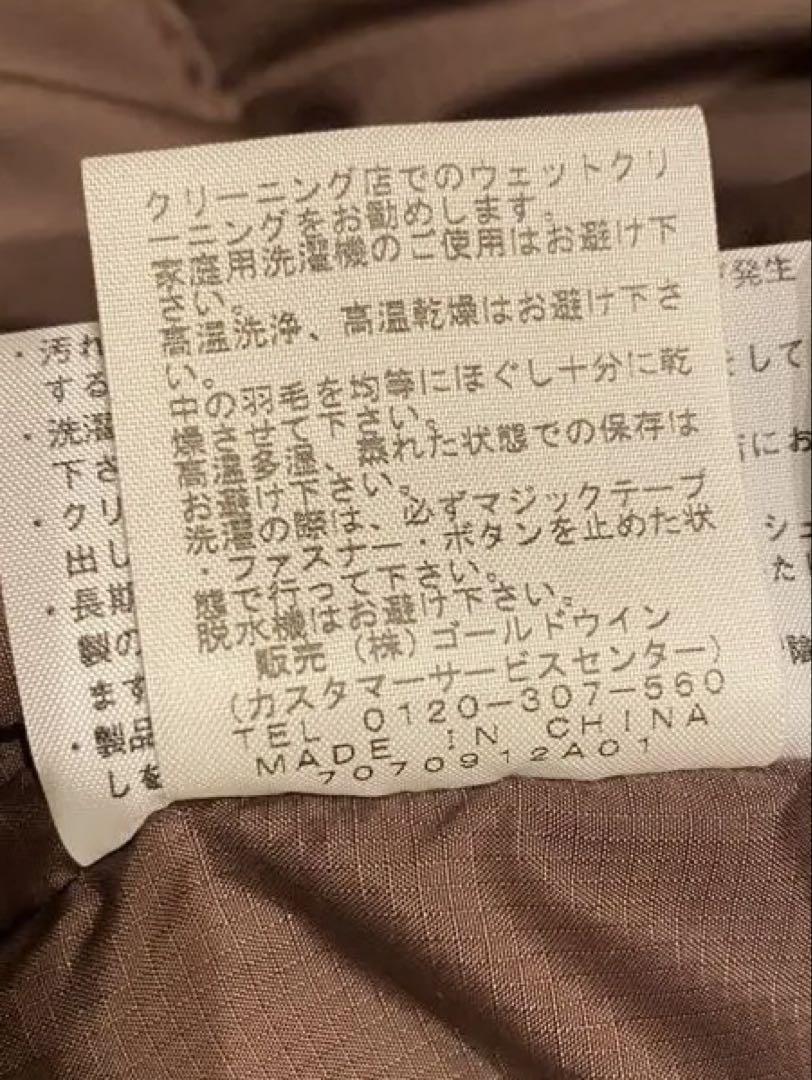 クリーニング店でのウェットクリ
ーニングをお勧めします。
家庭用洗濯機のご使用はお避け下
さい。
高温洗浄、高温乾燥はお避け下さ
い。
中の羽毛を均等にほぐし十分に乾
燥させて下さい。
高温多湿、蒸れた状態での保存は
お避け下さい。
洗濯の際は、必ずマジックテープ
・ファスナー・ボタンを止めた状
態で行って下さい。
脱水機はお避け下さい。
販売 (株)ゴールドウイン
(カスタマーサービスセンター)
TEL 0120-307-560
MADE IN CHINA
7070912A01
・汚れ
する
・洗濯
下さ
・クリ
出し
・長期
製の
ます
・製品
しを
発生
をして
にお
シュ
た